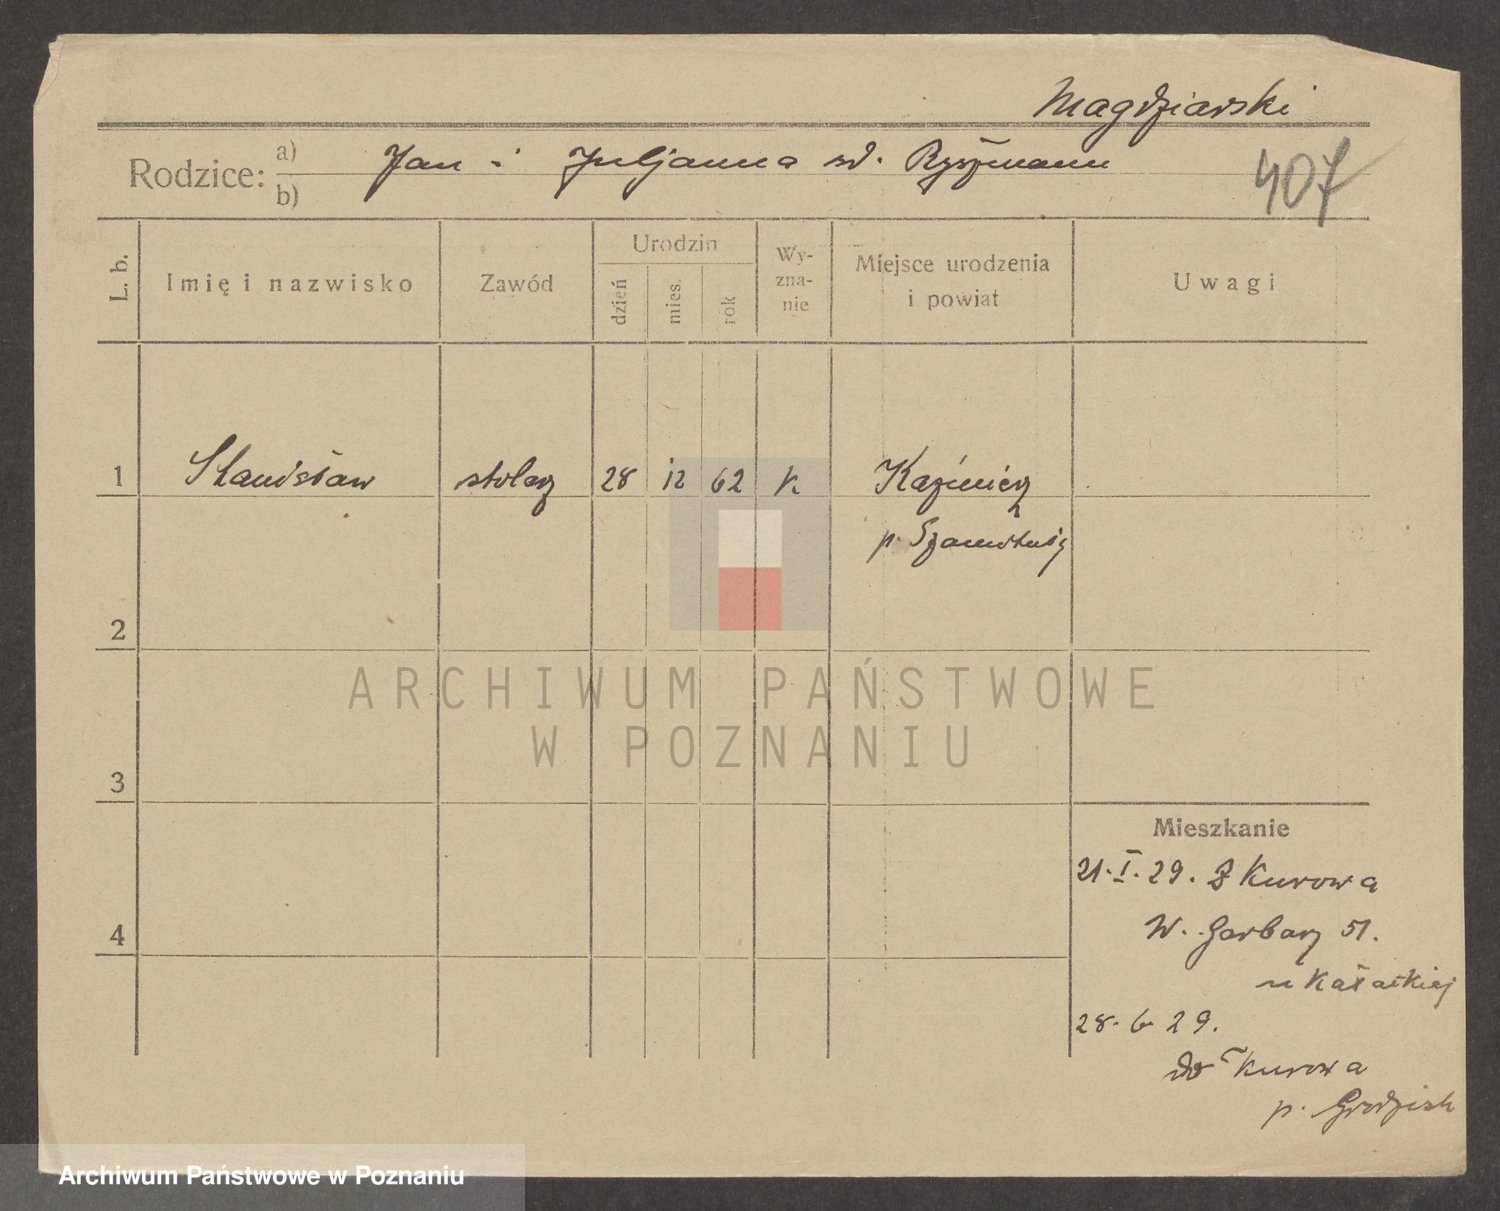 Magdziarski
Rodzice: a) b) Jan i Juljanna zd. Ryszmann
407
L. b.
Imię i nazwisko
Zawód
Urodzin
dzień
mies.
rok
Wy-
zna-
nie
Miejsce urodzenia
i powiat
Uwagi
1 Stanisław stolarz 28 12 62 k Kaźmierz
p. Szamotuły
2
3
4
ARCHIWUM PAŃSTWOWE
W POZNANIU
Mieszkanie
21.I.29. z Kurowa
W. Garbary 51.
u
28.6 29.
do Kurowa
p. Grodzisk
Archiwum Państwowe w Poznaniu